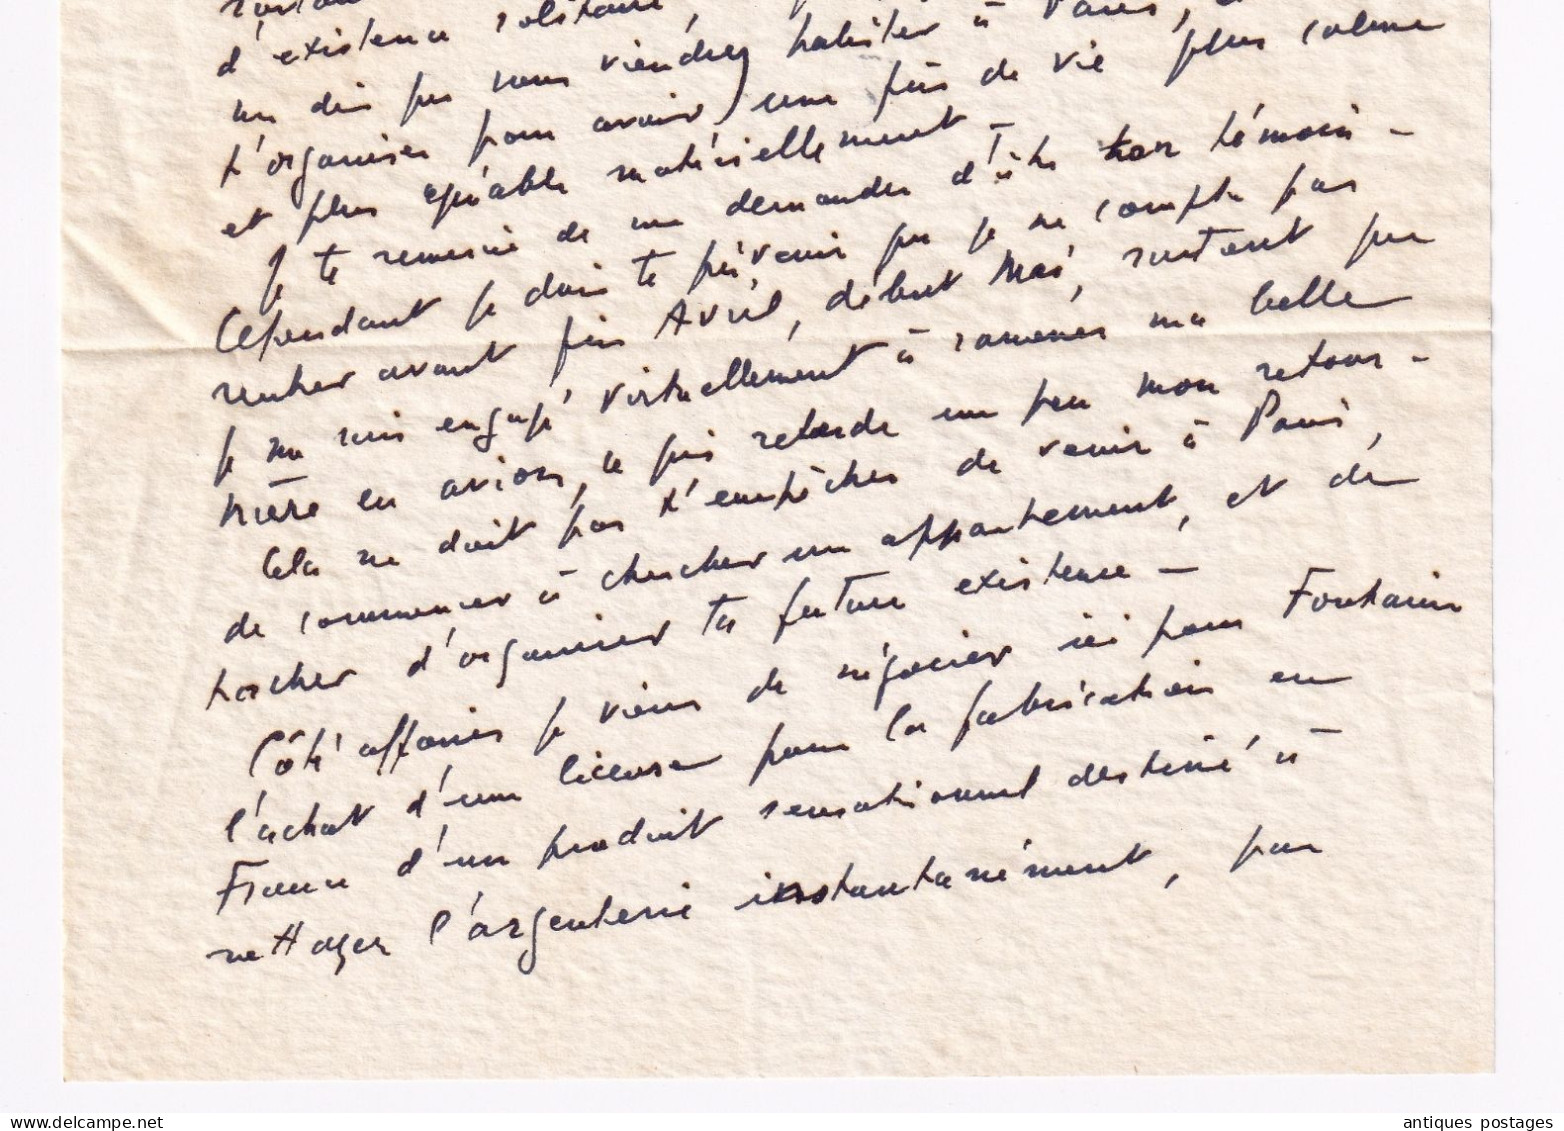 d'existence solitaire,
un din que vous viendrez habiter à Paris,
t'organiser pour avoir une fin de vie plus calme
et plus agréable matériellement -
Je te remercie de me demander d'être ton témoin -
Cependant je dois te prévenir que je ne compte pas
rentrer avant fin Avril, début Mai, surtout que
je me suis engagé virtuellement à ramener ma belle
mère en avion, ce qui retarde un peu mon retour -
Cela ne doit pas t'empêcher de venir à Paris,
de commencer à chercher un appartement, et de
tacher d'organiser ta future existence -
Côté affaires je viens de négocier ici pour Fontaine
l'achat d'une license pour la fabrication en
France d'un produit sensationnel destiné à
nettoyer l'argenterie instantanément, par
antiques postages
www.delcampe.net